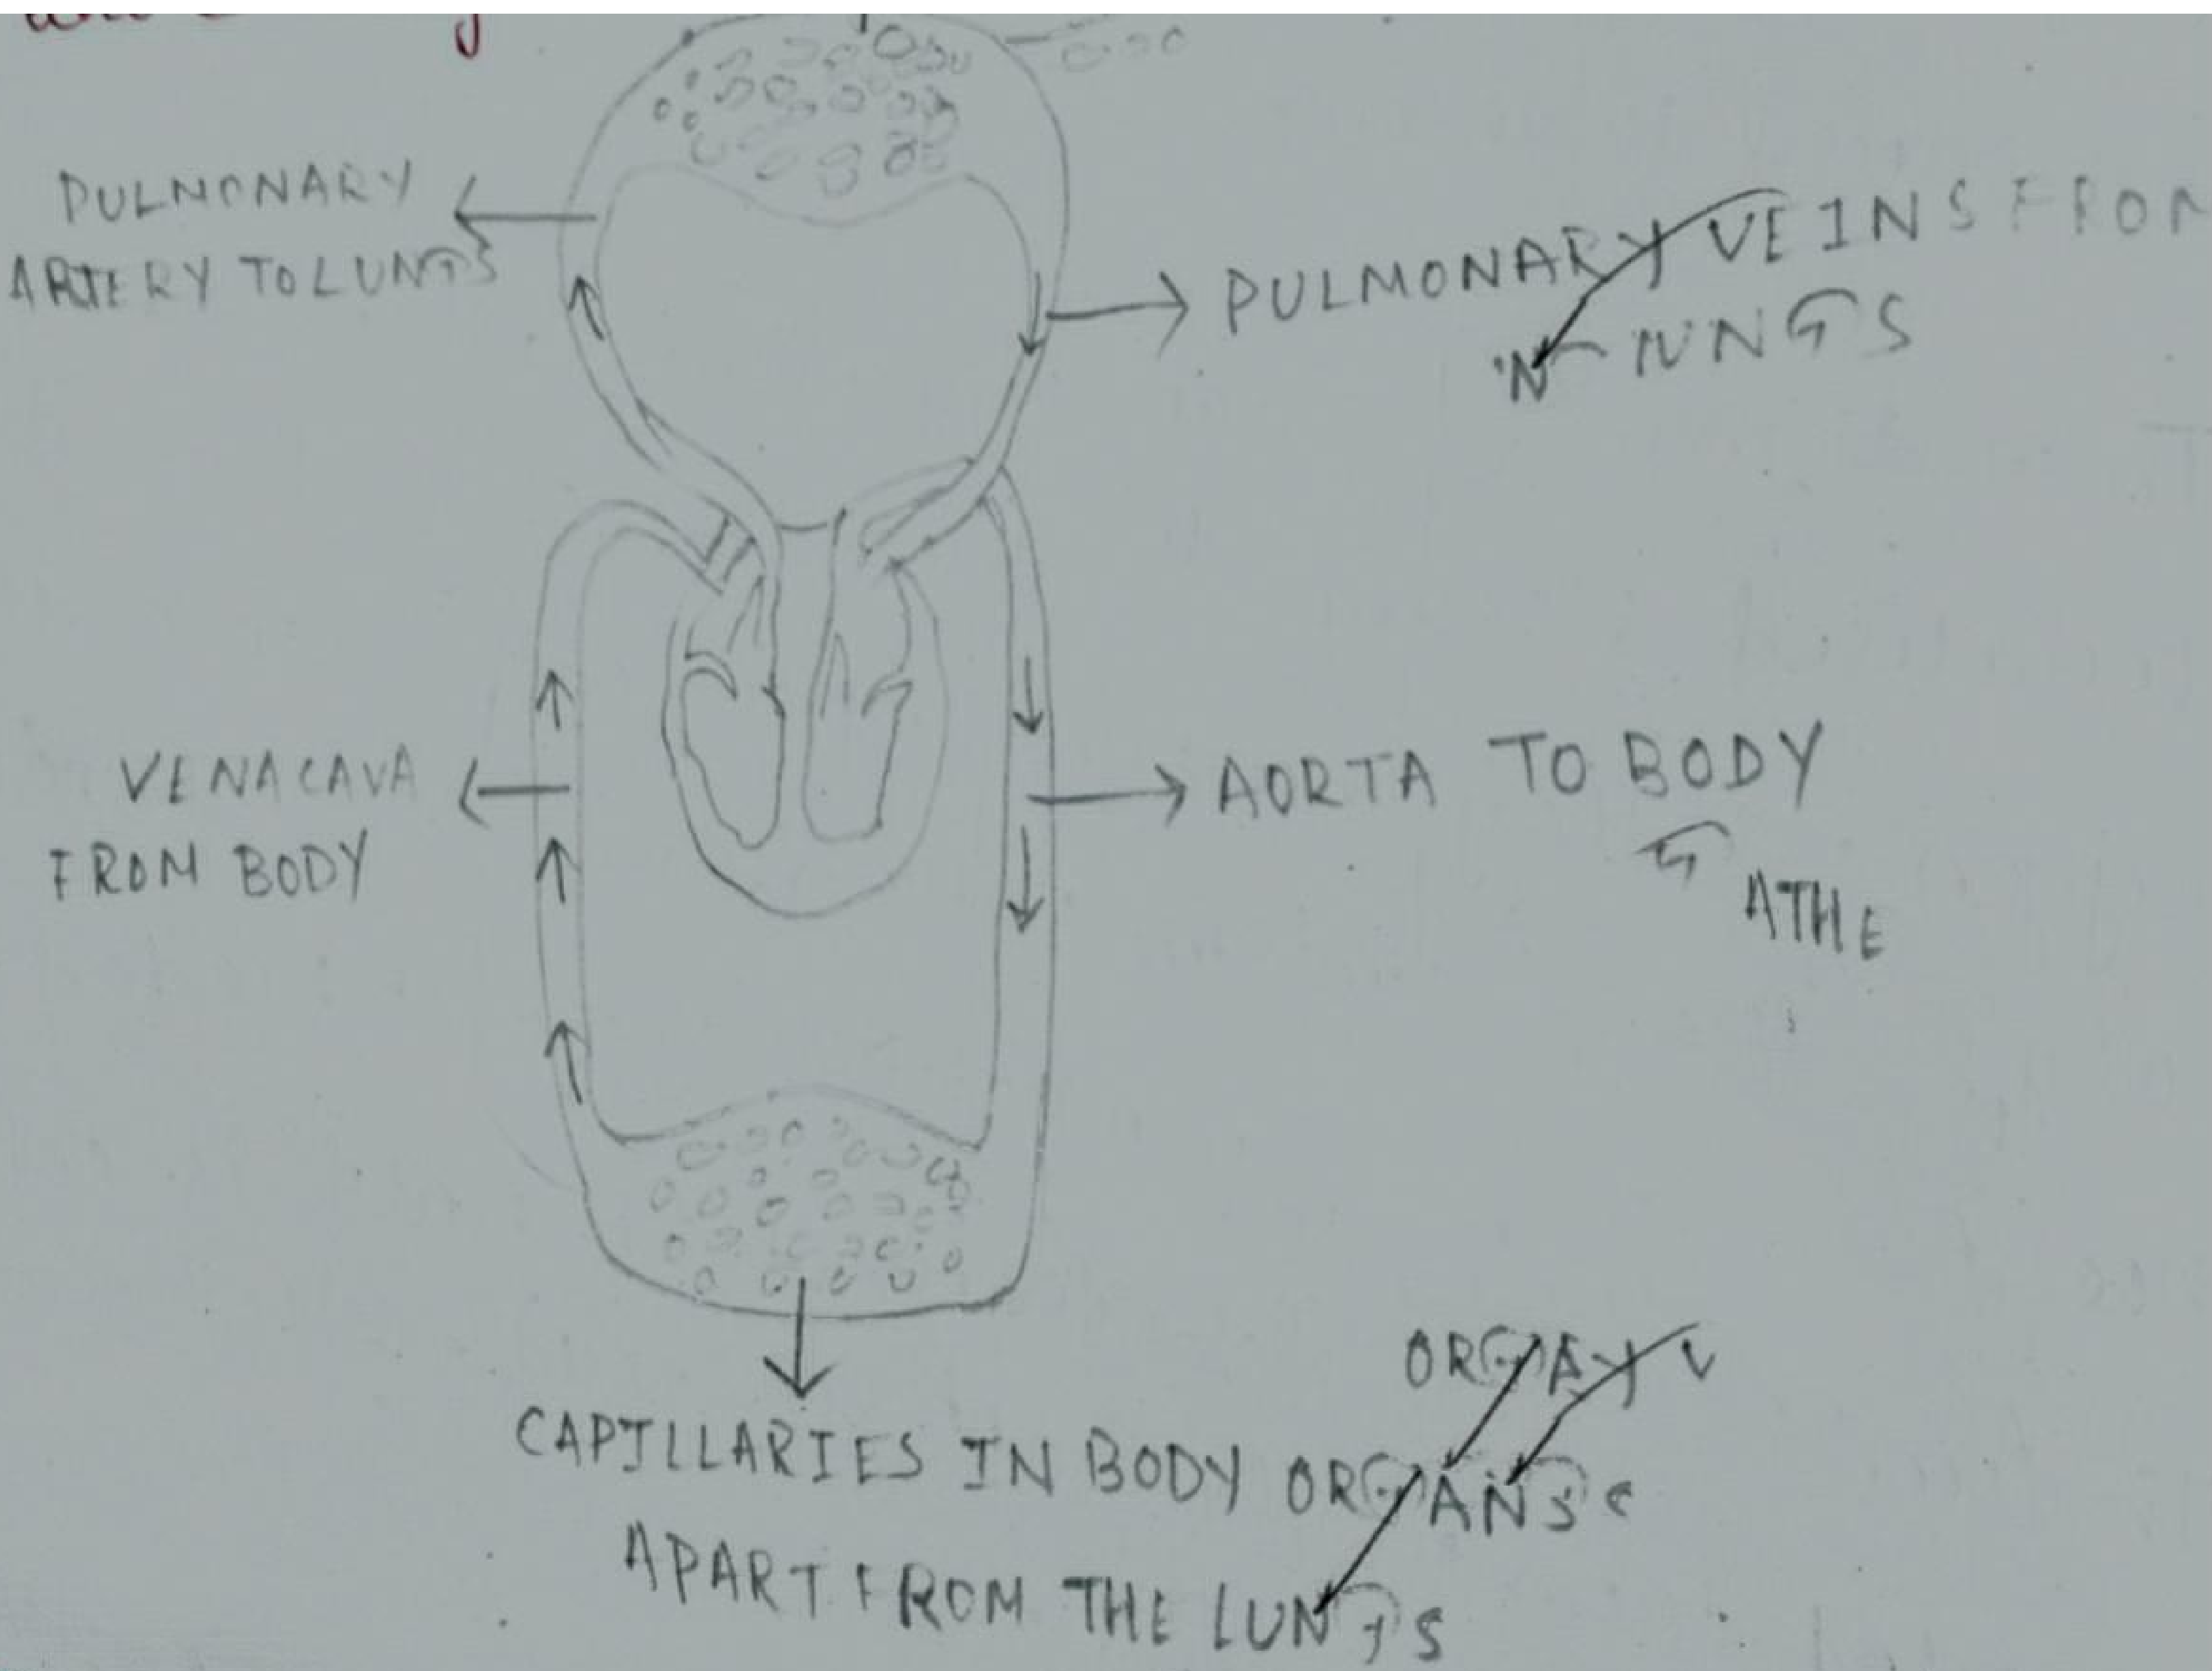 PULMONARY
ARTERY TO LUNGS
PULMONARY VEINS FROM
LUNGS
VENACAVA
FROM BODY
AORTA TO BODY
G
ATHE
CAPILLARIES IN BODY ORGANS
APART FROM THE LUNGS